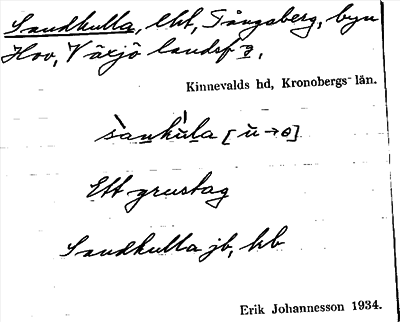 Sandkulla, lht, Tångsberg, byn
Hov, Växjö landsf 3,
Kinnevalds hd, Kronobergs län.
sànkùla [ù→o]
Ett grustag
Sandkulla jb, hb
Erik Johannesson 1934.